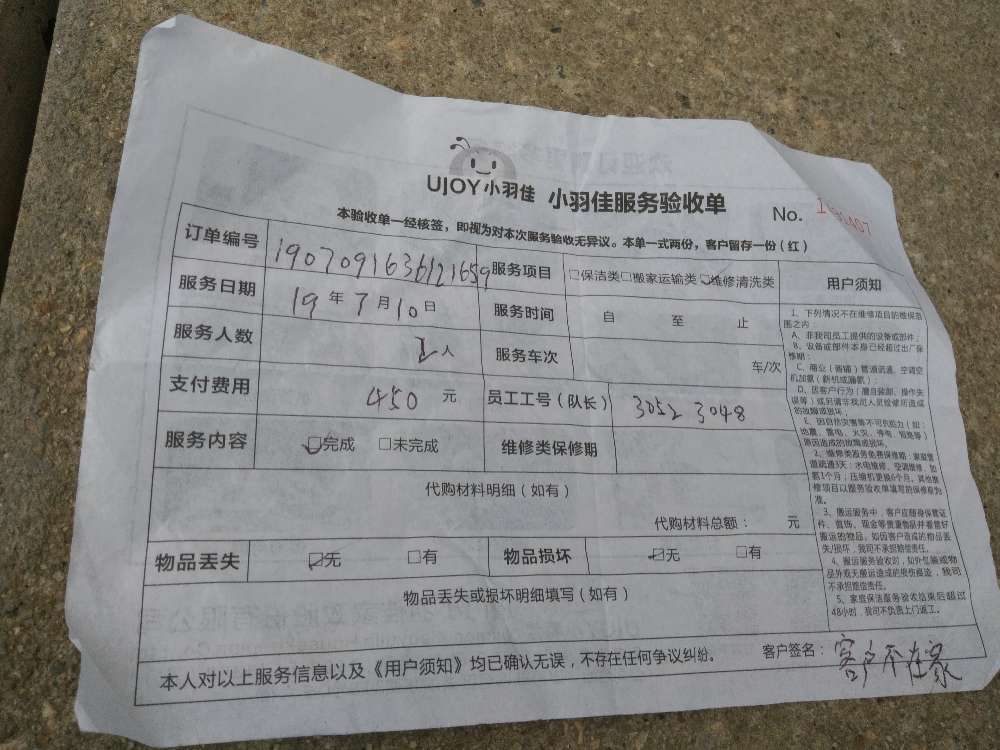 UJOY小羽佳 小羽佳服务验收单 No.
本验收单一经核签，即视为对本次服务验收无异议。本单一式两份，客户留存一份（红）
订单编号 1907091636121659 服务项目 □保洁类□搬家运输类☑维修清洗类
服务日期 19年7月10日 服务时间 自 至 止
服务人数 2人 服务车次 车/次
支付费用 450 元 员工工号（队长） 3052 3048
服务内容 ☑完成 □未完成 维修类保修期
代购材料明细（如有）
代购材料总额： 元
物品丢失 ☑无 □有 物品损坏 ☑无 □有
物品丢失或损坏明细填写（如有）
本人对以上服务信息以及《用户须知》均已确认无误，不存在任何争议纠纷。 客户签名：客户不在家
用户须知
1、下列情况不在维修项目的维保范
围之内：
A、非我司员工提供的设备或部件；
B、设备或部件本身已经超过出厂保
修期；
C、商业（商铺）管道疏通、空调空
机加氨（新机或漏氟）；
D、因客户行为（擅自装卸、操作失
误等）或另请非我司人员检修所造成
的故障或损坏；
E、因自然灾害等不可抗能力（如：
地震、雷电、火灾、停电、短路等）
原因造成的故障或损坏。
2、维修类服务免费保修期：家庭管
道疏通3天；水电维修、空调维修、加
氟1个月；压缩机更换6个月。其他维
修项目以服务验收单填写的保修期为
准。
3、搬运服务中，客户应随身保管证
件、首饰、现金等贵重物品并看管好
搬运的物品。如因客户造成的物品丢
失/损坏，我司不承担赔偿责任。
4、搬运服务验收时，如外包装或物
品外观无搬运造成的损伤痕迹，我司
不承担赔偿责任。
5、家庭保洁服务验收结束后超过
48小时，我司不负责上门返工。